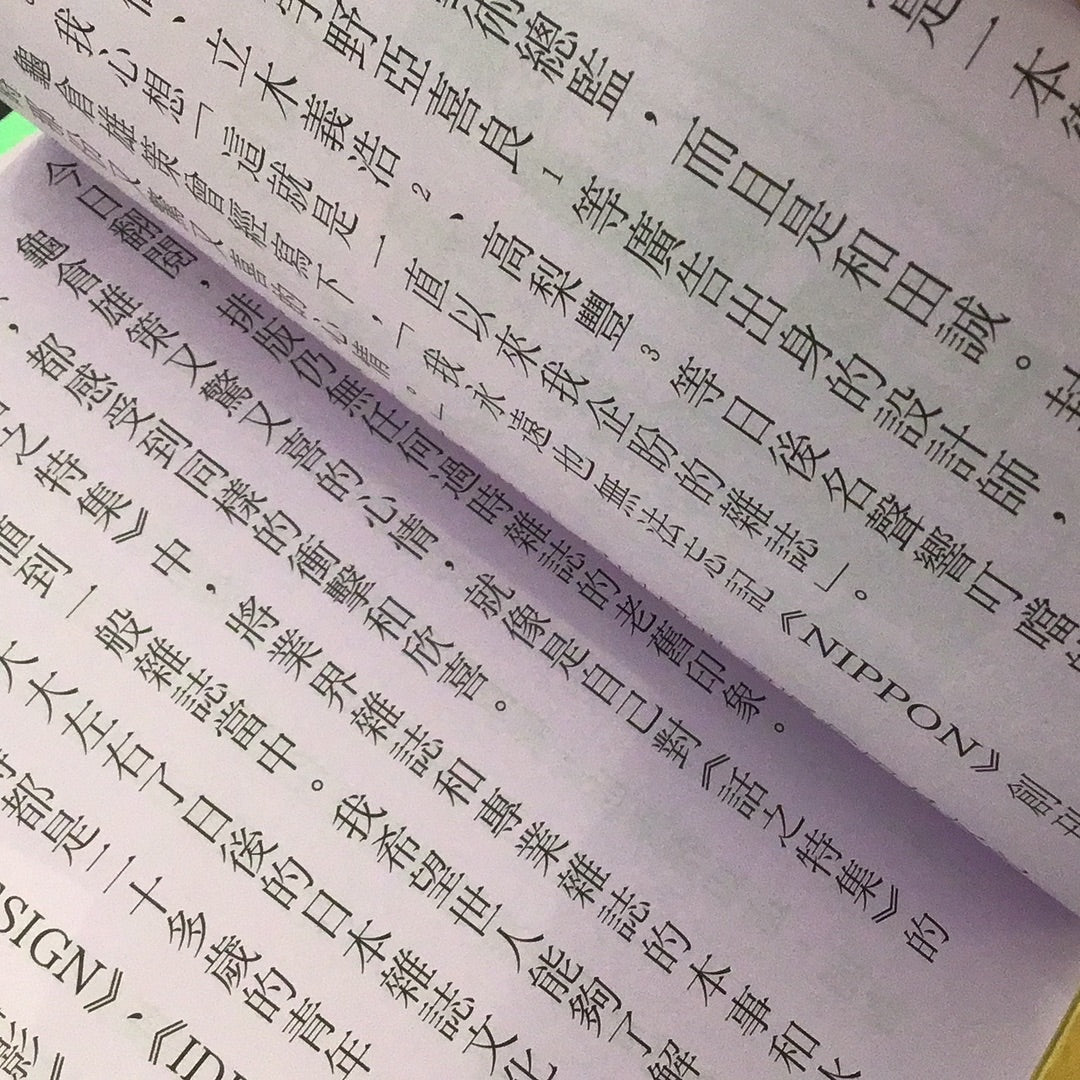 是一本
術總監，而且是和田誠。封
野亞喜良1等廣告出身的設計師，
、立木義浩2、高梨豐3等日後名聲響叮噹的
我心想「這就是一直以來我企盼的雜誌」。
龜倉雄策曾經寫下，「我永遠也無法忘記《NIPPON》創刊
又驚又喜的心情。」
今日翻閱，排版仍無任何過時雜誌的老舊印象。
龜倉雄策又驚又喜的心情，就像是自己對《話之特集》的
，都感受到同樣的衝擊和欣喜。
之特集》中，將業界雜誌和專業雜誌的本事和
值到一般雜誌當中。我希望世人能夠了解
大大左右了日後的日本雜誌文化
都是二十多歲的青年
SIGN》、《ID
影》